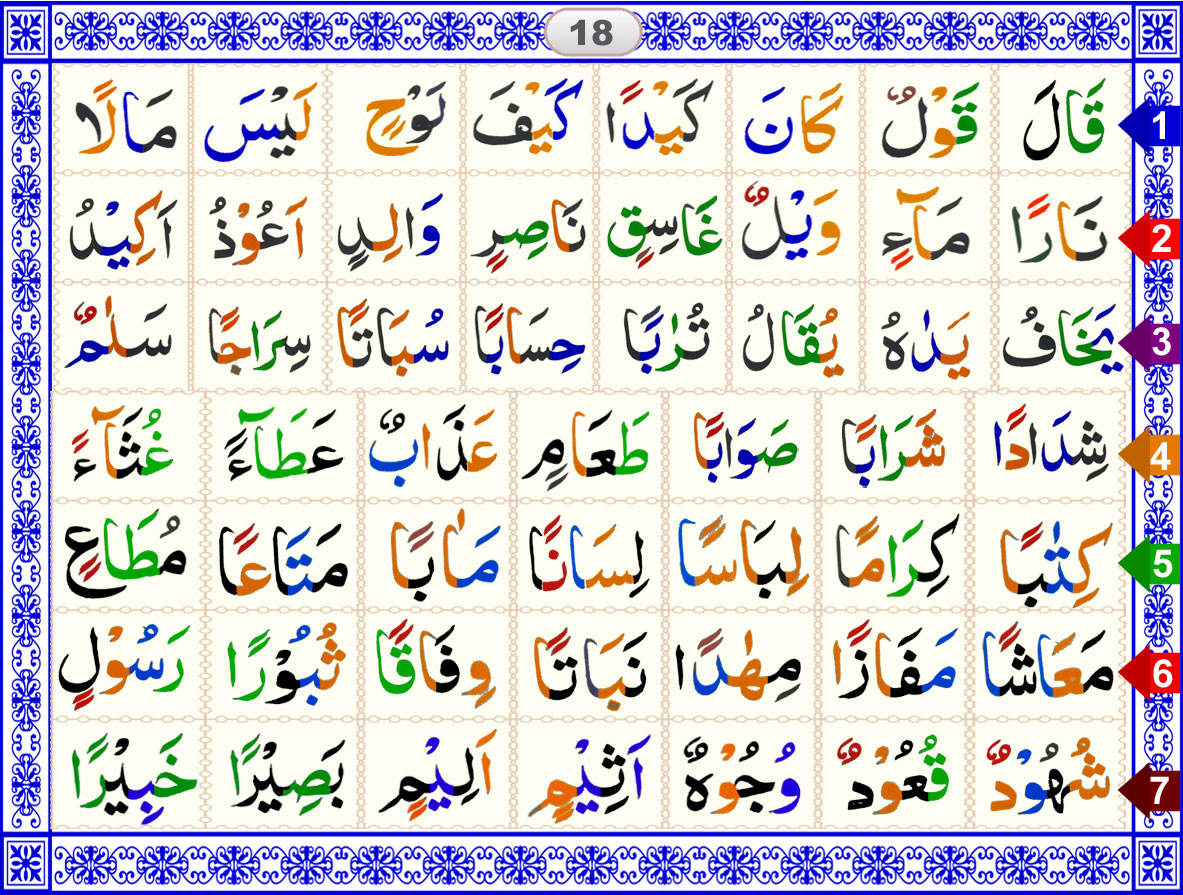 18
قَالَ قَوْلٌ كَانَ كَيْدًا كَيْفَ لَوْحٍ لَيْسَ مَالًا 1
نَارًا مَآءٍ وَيْلٌ غَاسِقٍ نَاصِرٍ وَالِدٍ اَعُوْذُ اَكِيْدُ 2
يَخَافُ يَدٰهُ يُقَالُ تُرٰبًا حِسَابًا سُبَاتًا سِرَاجًا سَلٰمٌ 3
شِدَادًا شَرَابًا صَوَابًا طَعَامٍ عَذَابٌ عَطَآءً غُثَآءً 4
كِتٰبًا كِرَامًا لِبَاسًا لِسَانًا مَاٰبًا مَتَاعًا مُطَاعٍ 5
مَعَاشًا مَفَازًا مِهٰدًا نَبَاتًا وِفَاقًا ثُبُوْرًا رَسُوْلٍ 6
شُهُوْدٌ قُعُوْدٌ وُجُوْهٌ اَثِيْمٍ اَلِيْمٍ بَصِيْرًا خَبِيْرًا 7